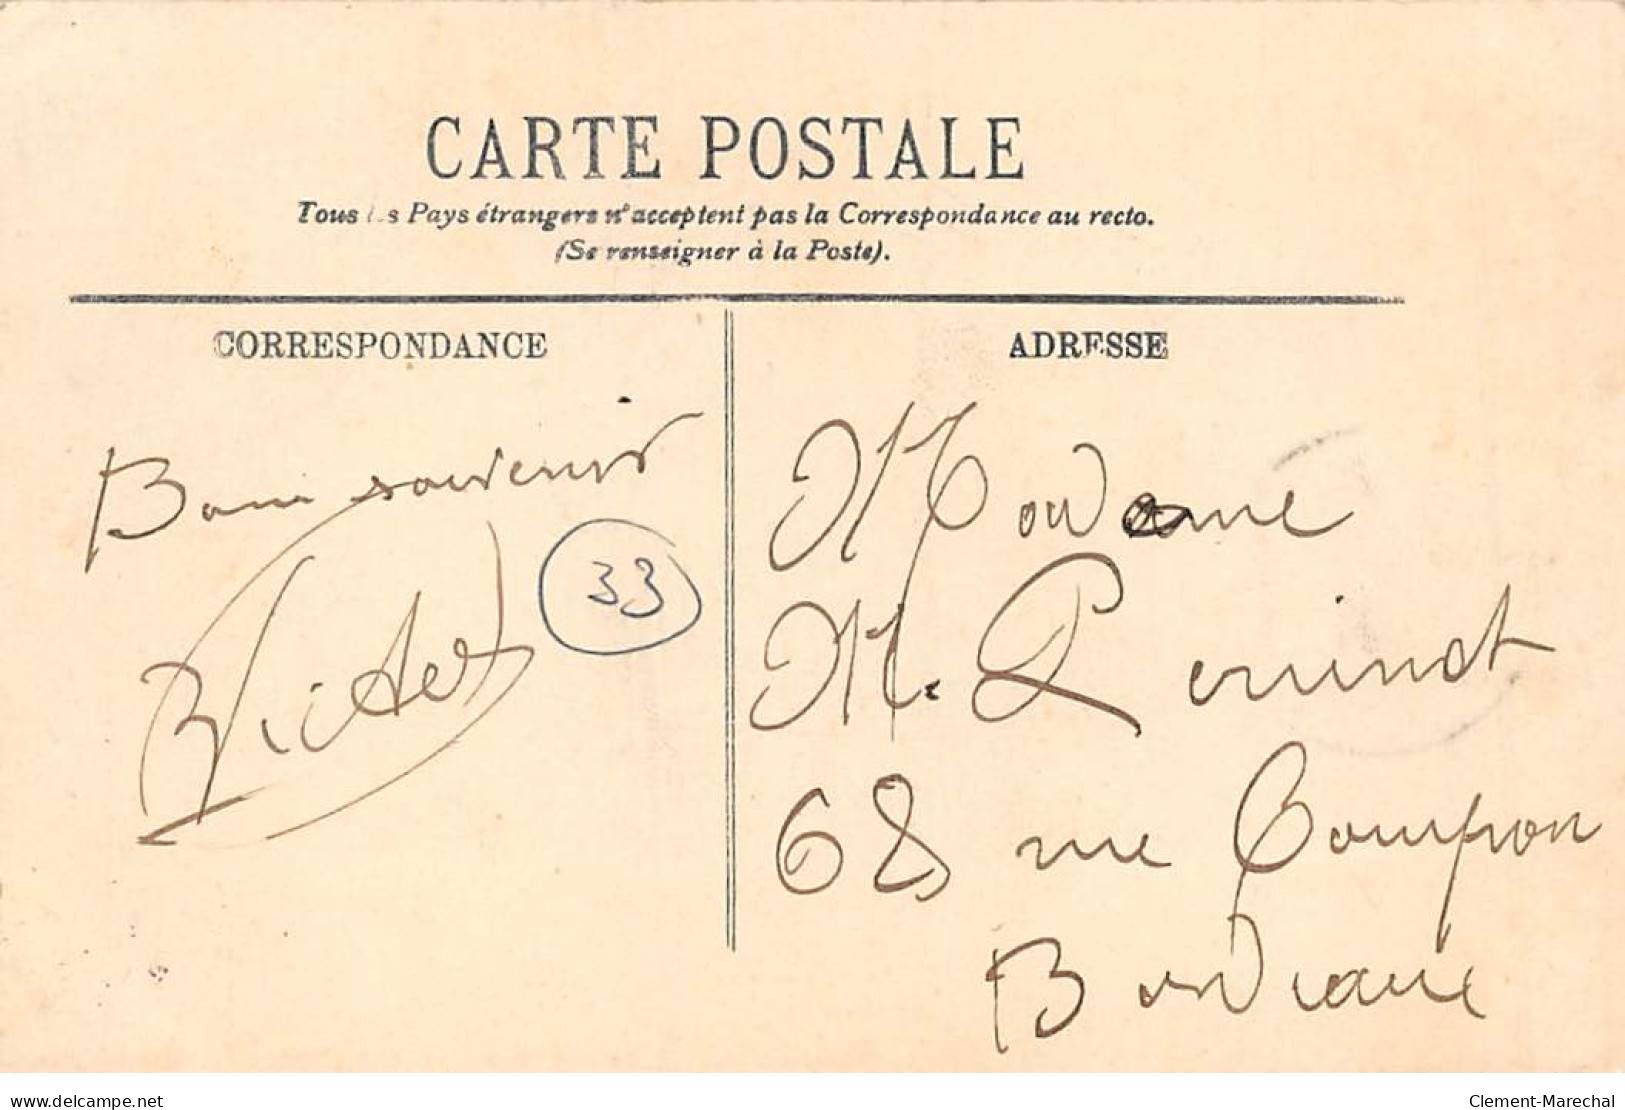 CARTE POSTALE
Tous les Pays étrangers n'acceptent pas la Correspondance au recto.
(Se renseigner à la Poste).
CORRESPONDANCE
ADRESSE
Bons souvenirs
33
Madame
M.
68 rue
Bordeaux
www.delcampe.net
Clement-Marechal